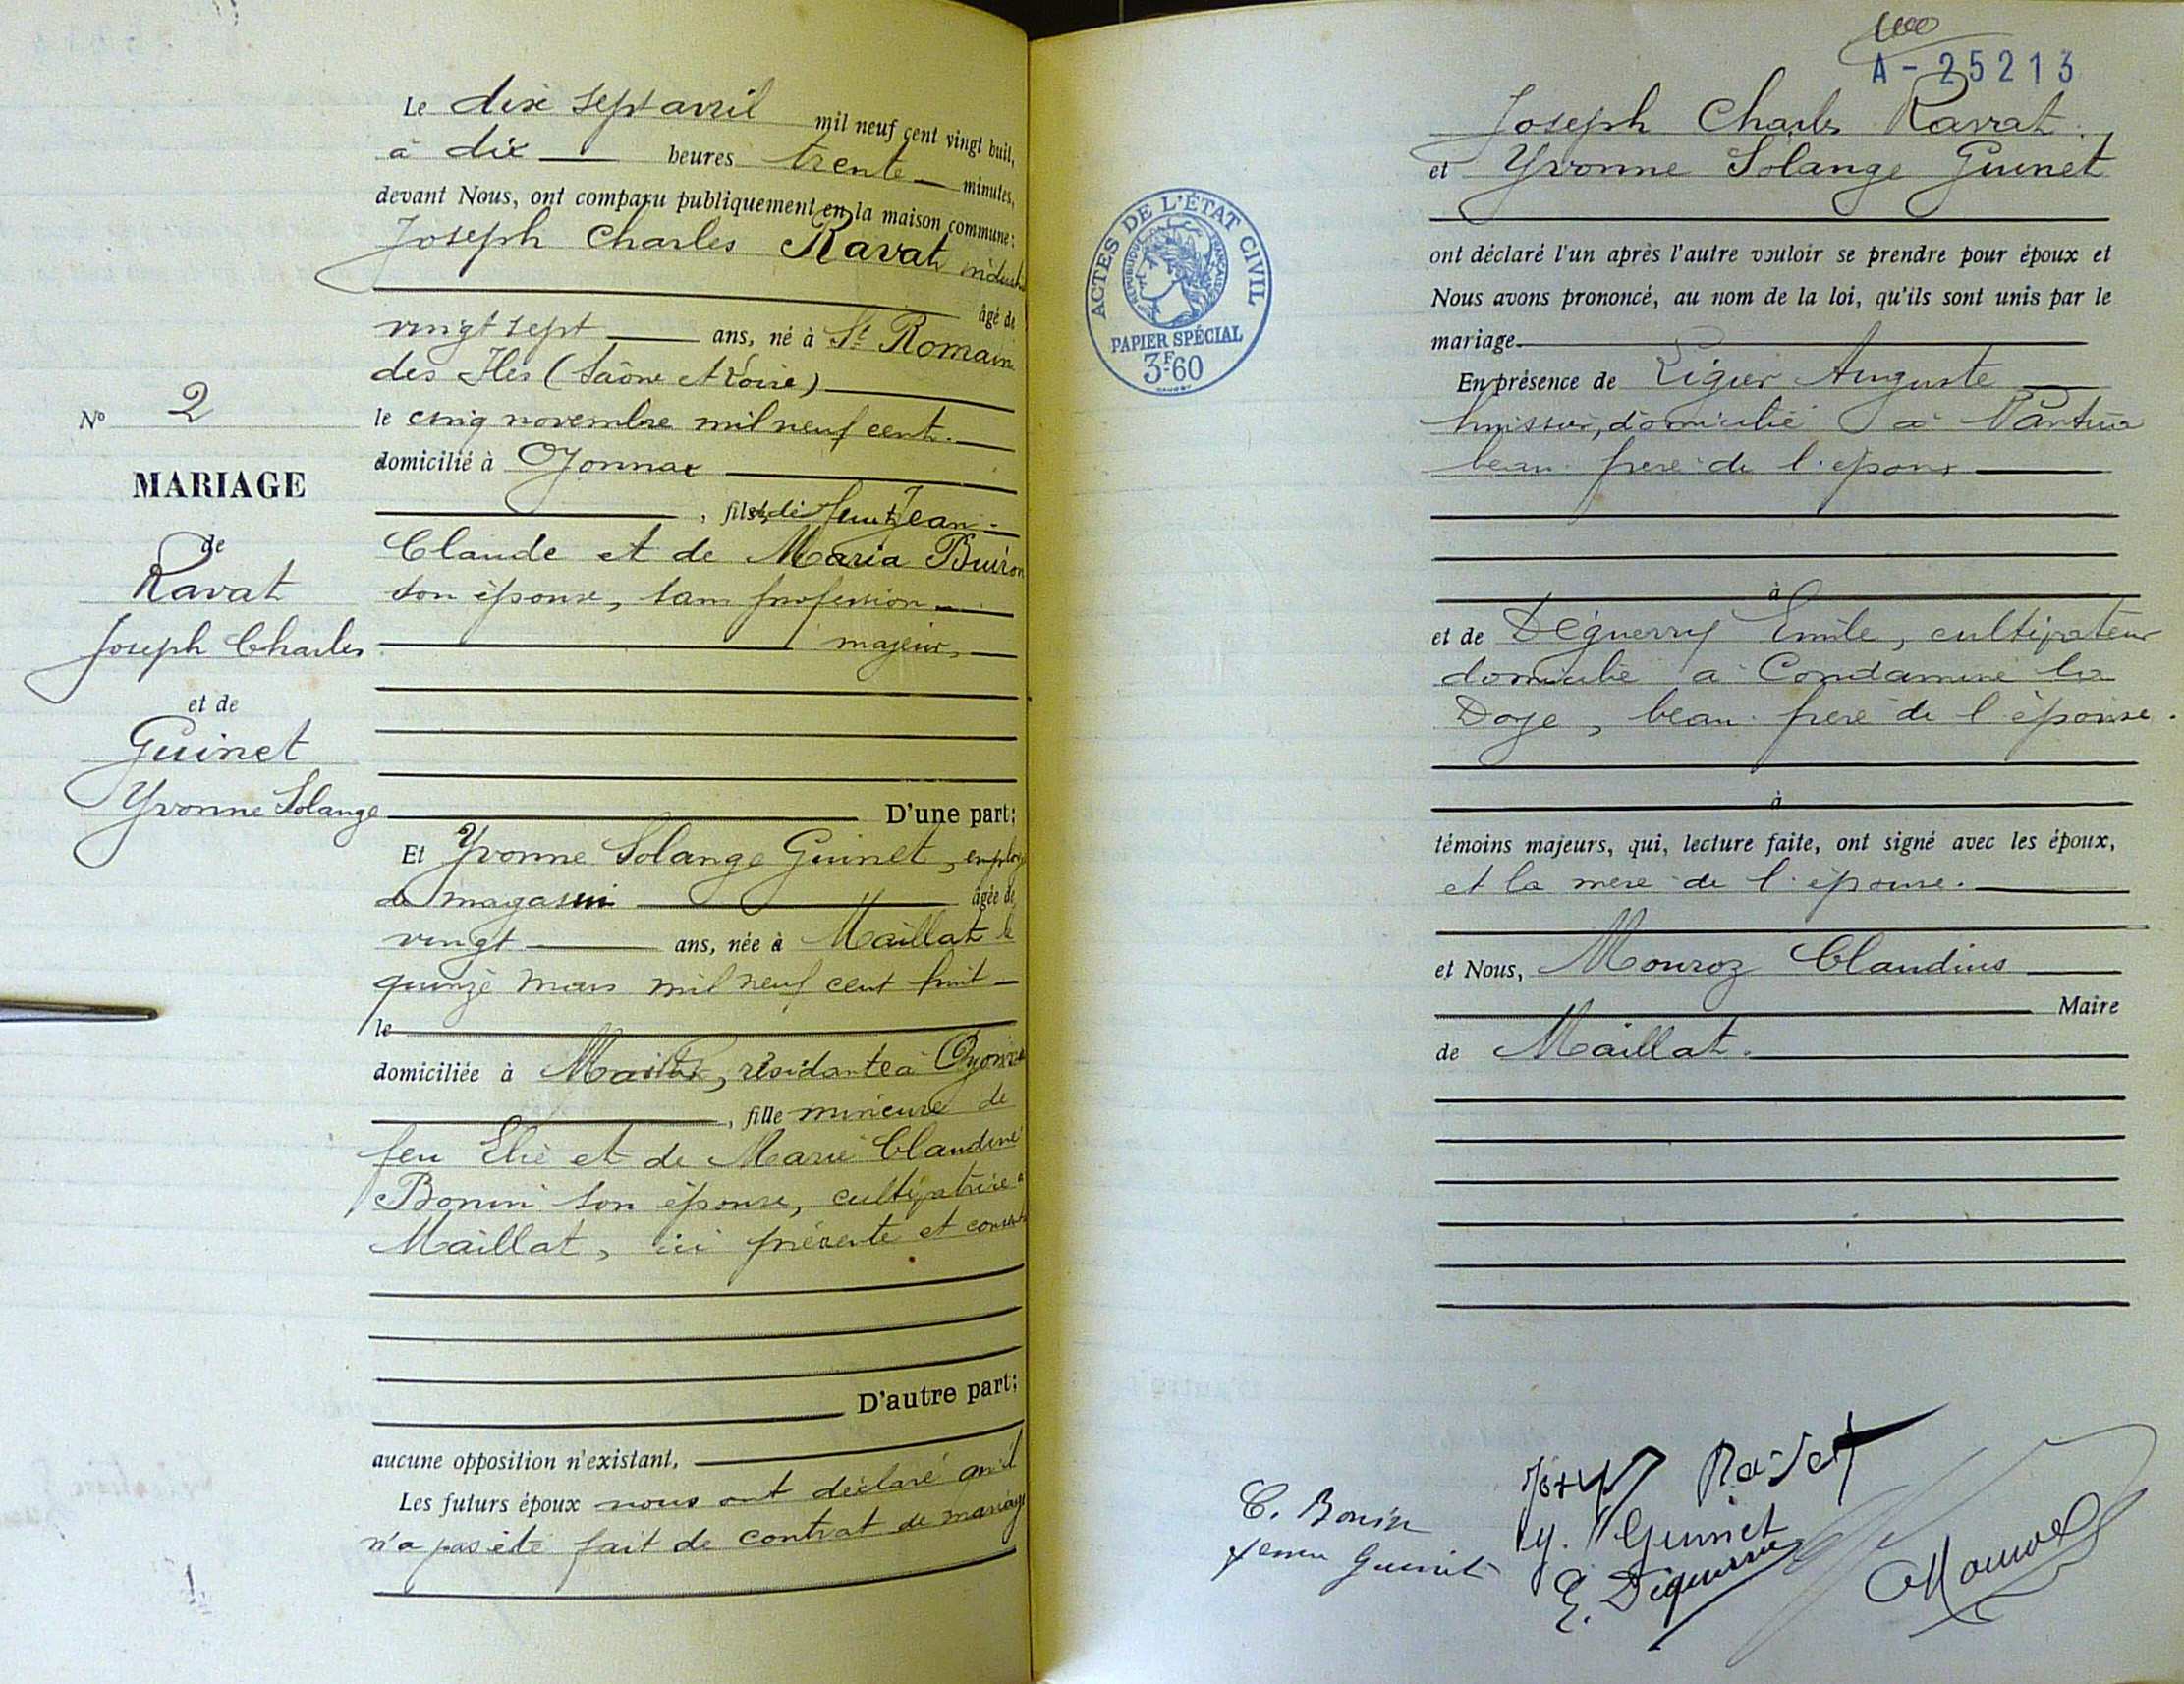 Le dix sept avril mil neuf cent vingt huit,
à dix heures trente minutes,
devant Nous, ont comparu publiquement en la maison commune :
Joseph Charles Ravat
âgé de
vingt sept ans, né à St Romain
des Iles (Saône et Loire)
le cinq novembre mil neuf cent.
domicilié à Oyonnax
, fils de feu Jean-
Claude et de Maria Buiron
son épouse, sans profession
majeur,
D'une part;
Et Yvonne Solange Guinet, employ
de magasin âgée de
vingt ans, née à Maillat le
quinze mars mil neuf cent huit
le
domiciliée à Maillat, résidante à Oyonnax
, fille mineure de
feu Elie et de Marie Claudine
Bonin son épouse, cultivatrice à
Maillat, ici présente et
D'autre part;
aucune opposition n'existant,
Les futurs époux nous ont déclaré qu'il
n'a pas été fait de contrat de mariage
No 2
MARIAGE
de
Ravat
Joseph Charles
et de
Guinet
Yvonne Solange
A-25213
Joseph Charles Ravat
et Yvonne Solange Guinet
ont déclaré l'un après l'autre vouloir se prendre pour époux et
Nous avons prononcé, au nom de la loi, qu'ils sont unis par le
mariage
En présence de Ligier Auguste
huissier, domicilié à Nantua
beau-frère de l'époux
à
et de Déguerry Emile, cultivateur
domicilié à Condamine la
Doye, beau-frère de l'épouse.
à
témoins majeurs, qui, lecture faite, ont signé avec les époux,
et la mère de l'épouse.
et Nous, Mouroz Claudius
Maire
de Maillat.
ACTES DE L'ÉTAT CIVIL
RÉPUBLIQUE FRANÇAISE
PAPIER SPÉCIAL
3F60
C. Bonin
Guinet
Joseph Ravat
y. Guinet
E. Déguerry